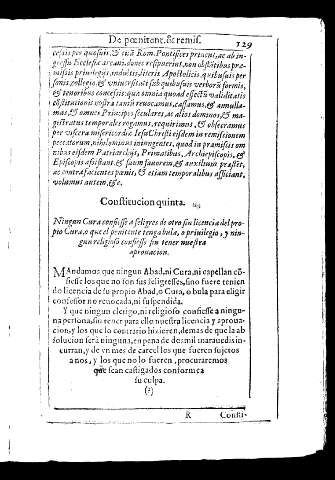 De pœnitent. & remiss. 129
cessis per quoscũq. & etiã Rom. Pontifices
gressu Ecclesiæ arcani, donec respuerint, non obstãtibus præ-
missis priuilegijs, indultis, literis Apostolicis, quibusuis per-
sonis, collegijs, & vniuersitatib. sub quibusuis verborũ formis,
& tenoribus concessis: quæ omnia quoad effectũ validitatis
obstitationis nostra tanti reuocamus, cassamus, & annulla-
mus, & omnes Principes seculares, ac alios dominos, & ma-
gistratus temporales rogamus, requirimus, & obsecramus
per viscera misericordiæ Iesu Christi eisdem in remissionem
peccatorum, nihilominus iniungentes, quod in præmissis om
nibus eisdem Patriarchis, Primatibus, Archiepiscopis, &
Episcopis assistant, & suum fauorem, & auxilium præstẽt,
ac contrafacientes pœnis, & etiam temporalibus afficiant,
volumus autem, &c.
Constitucion quinta.
Ningun Cura confiesse a feligres de otro sin licencia del pro-
pio Cura, o que el penitente tenga bula, o priuilegio, y nin-
gun religioso confiesse sin tener nuestra
aprouacion.
MAndamos que ningun Abad, ni Cura, ni capellan cõ-
fiesse los que no son sus feligresses, sino fuere tenien
do licencia de su propio Abad, o Cura, o bula para eligir
confessor no reuocada, ni suspendida.
Y que ningun clerigo, ni religioso confiesse a ningu-
na persona, sin tener para ello nuestra licencia y aproua-
cion: y los que lo contrario hizieren, demas de que la ab
solucion será ninguna, en pena de dos mil marauedis in-
curran, y de vn mes de carcel los que fueren sujetos
a nos, y los que no lo fueren, procuraremos
que sean castigados conforme a
su culpa.
(?)
R Consti-